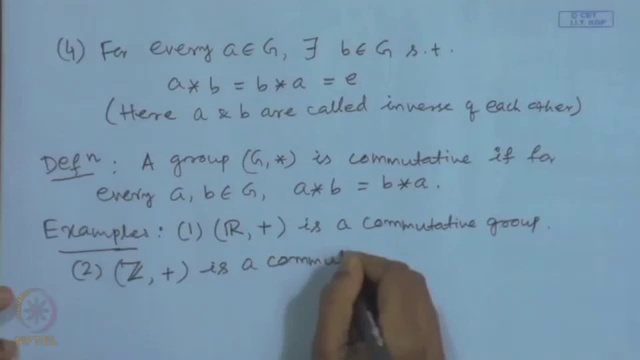 © CET
I.I.T. KGP
(4) For every a ∈ G, ∃ b ∈ G s.t.
a * b = b * a = e
(Here a & b are called inverse of each other)
Defⁿ : A group (G, *) is commutative if for
every a, b ∈ G, a * b = b * a.
Examples : (1) (ℝ, +) is a commutative group.
(2) (ℤ, +) is a commu
NPTEL